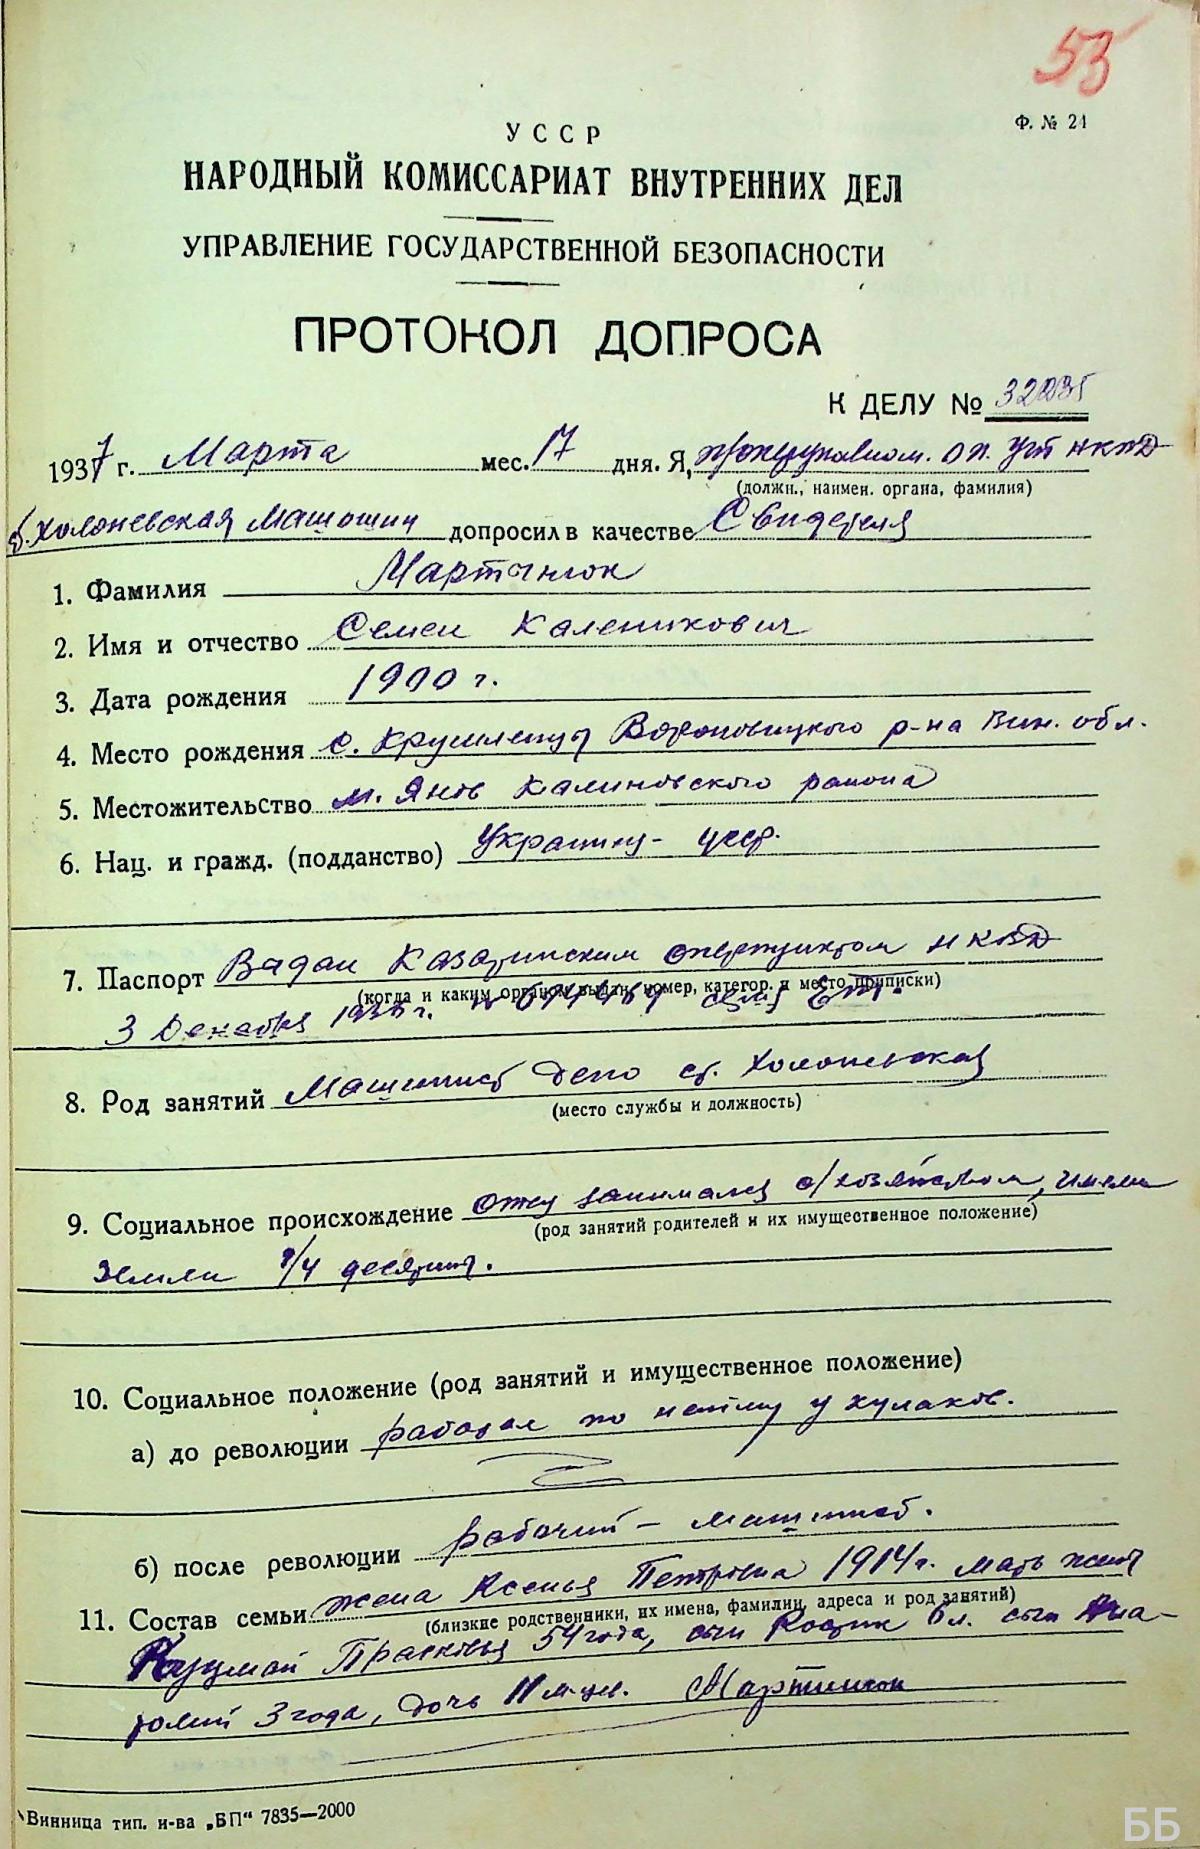 53
Ф. № 24
УССР
НАРОДНЫЙ КОМИССАРИАТ ВНУТРЕННИХ ДЕЛ
УПРАВЛЕНИЕ ГОСУДАРСТВЕННОЙ БЕЗОПАСНОСТИ
ПРОТОКОЛ ДОПРОСА
К ДЕЛУ №
1937 г. Марта мес. 17 дня. Я, НКВД
(должн., наимен. органа, фамилия)
ст. Холоневская допросил в качестве Свидетеля
1. Фамилия Мартынюк
2. Имя и отчество Семен Каленикович
3. Дата рождения 1900 г.
4. Место рождения с. Крушленцы Вороновицкого р-на Вин. обл.
5. Местожительство м. Янов Калиновского района
6. Нац. и гражд. (подданство) Украинец - усср.
7. Паспорт Выдан Казатинским оперпунктом НКВД
(когда и каким органом выдан, номер, категор. и место приписки)
3 Декабря 193 г. №
8. Род занятий Машинист депо ст. Холоневская
(место службы и должность)
9. Социальное происхождение Отец занимался с/хозяйством, имели
(род занятий родителей и их имущественное положение)
земли /4 десятины.
10. Социальное положение (род занятий и имущественное положение)
а) до революции работал по найму у кулаков.
б) после революции рабочий - машинист.
11. Состав семьи жена Ксенья Петровна 1914 г. мать жены
(близкие родственники, их имена, фамилии, адреса и род занятий)
Прасковья 54 года, сын 6 л. сын Ана-
толий 3 года, дочь 11 м-цев. Мартинюк
Винница тип. и-ва „БП“ 7835—2000
ББ